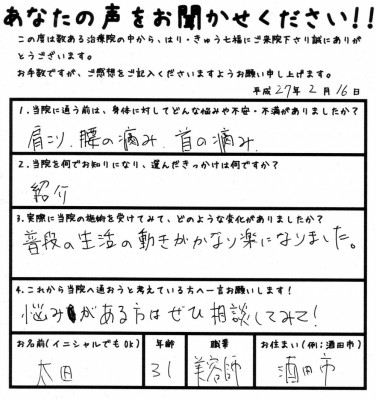 あなたの声をお聞かせください!!
この度は数ある治療院の中から、はり・きゅう七福にご来院下さり誠にありが
とうございます。
お手数ですが、ご感想をご記入くださいますようお願い申し上げます。
平成27年2月16日
1.当院に通う前は、身体に対してどんな悩みや不安・不満がありましたか?
肩こり、腰の痛み、首の痛み
2.当院を何でお知りになり、選んだきっかけは何ですか?
紹介
3.実際に当院の施術を受けてみて、どのような変化がありましたか?
普段の生活の動きがかなり楽になりました。
4.これから当院へ通おうと考えている方へ一言お願いします!
悩みがある方はぜひ相談してみて!
お名前(イニシャルでもOK) 年齢 職業 お住まい(例:酒田市)
太田 31 美容師 酒田市